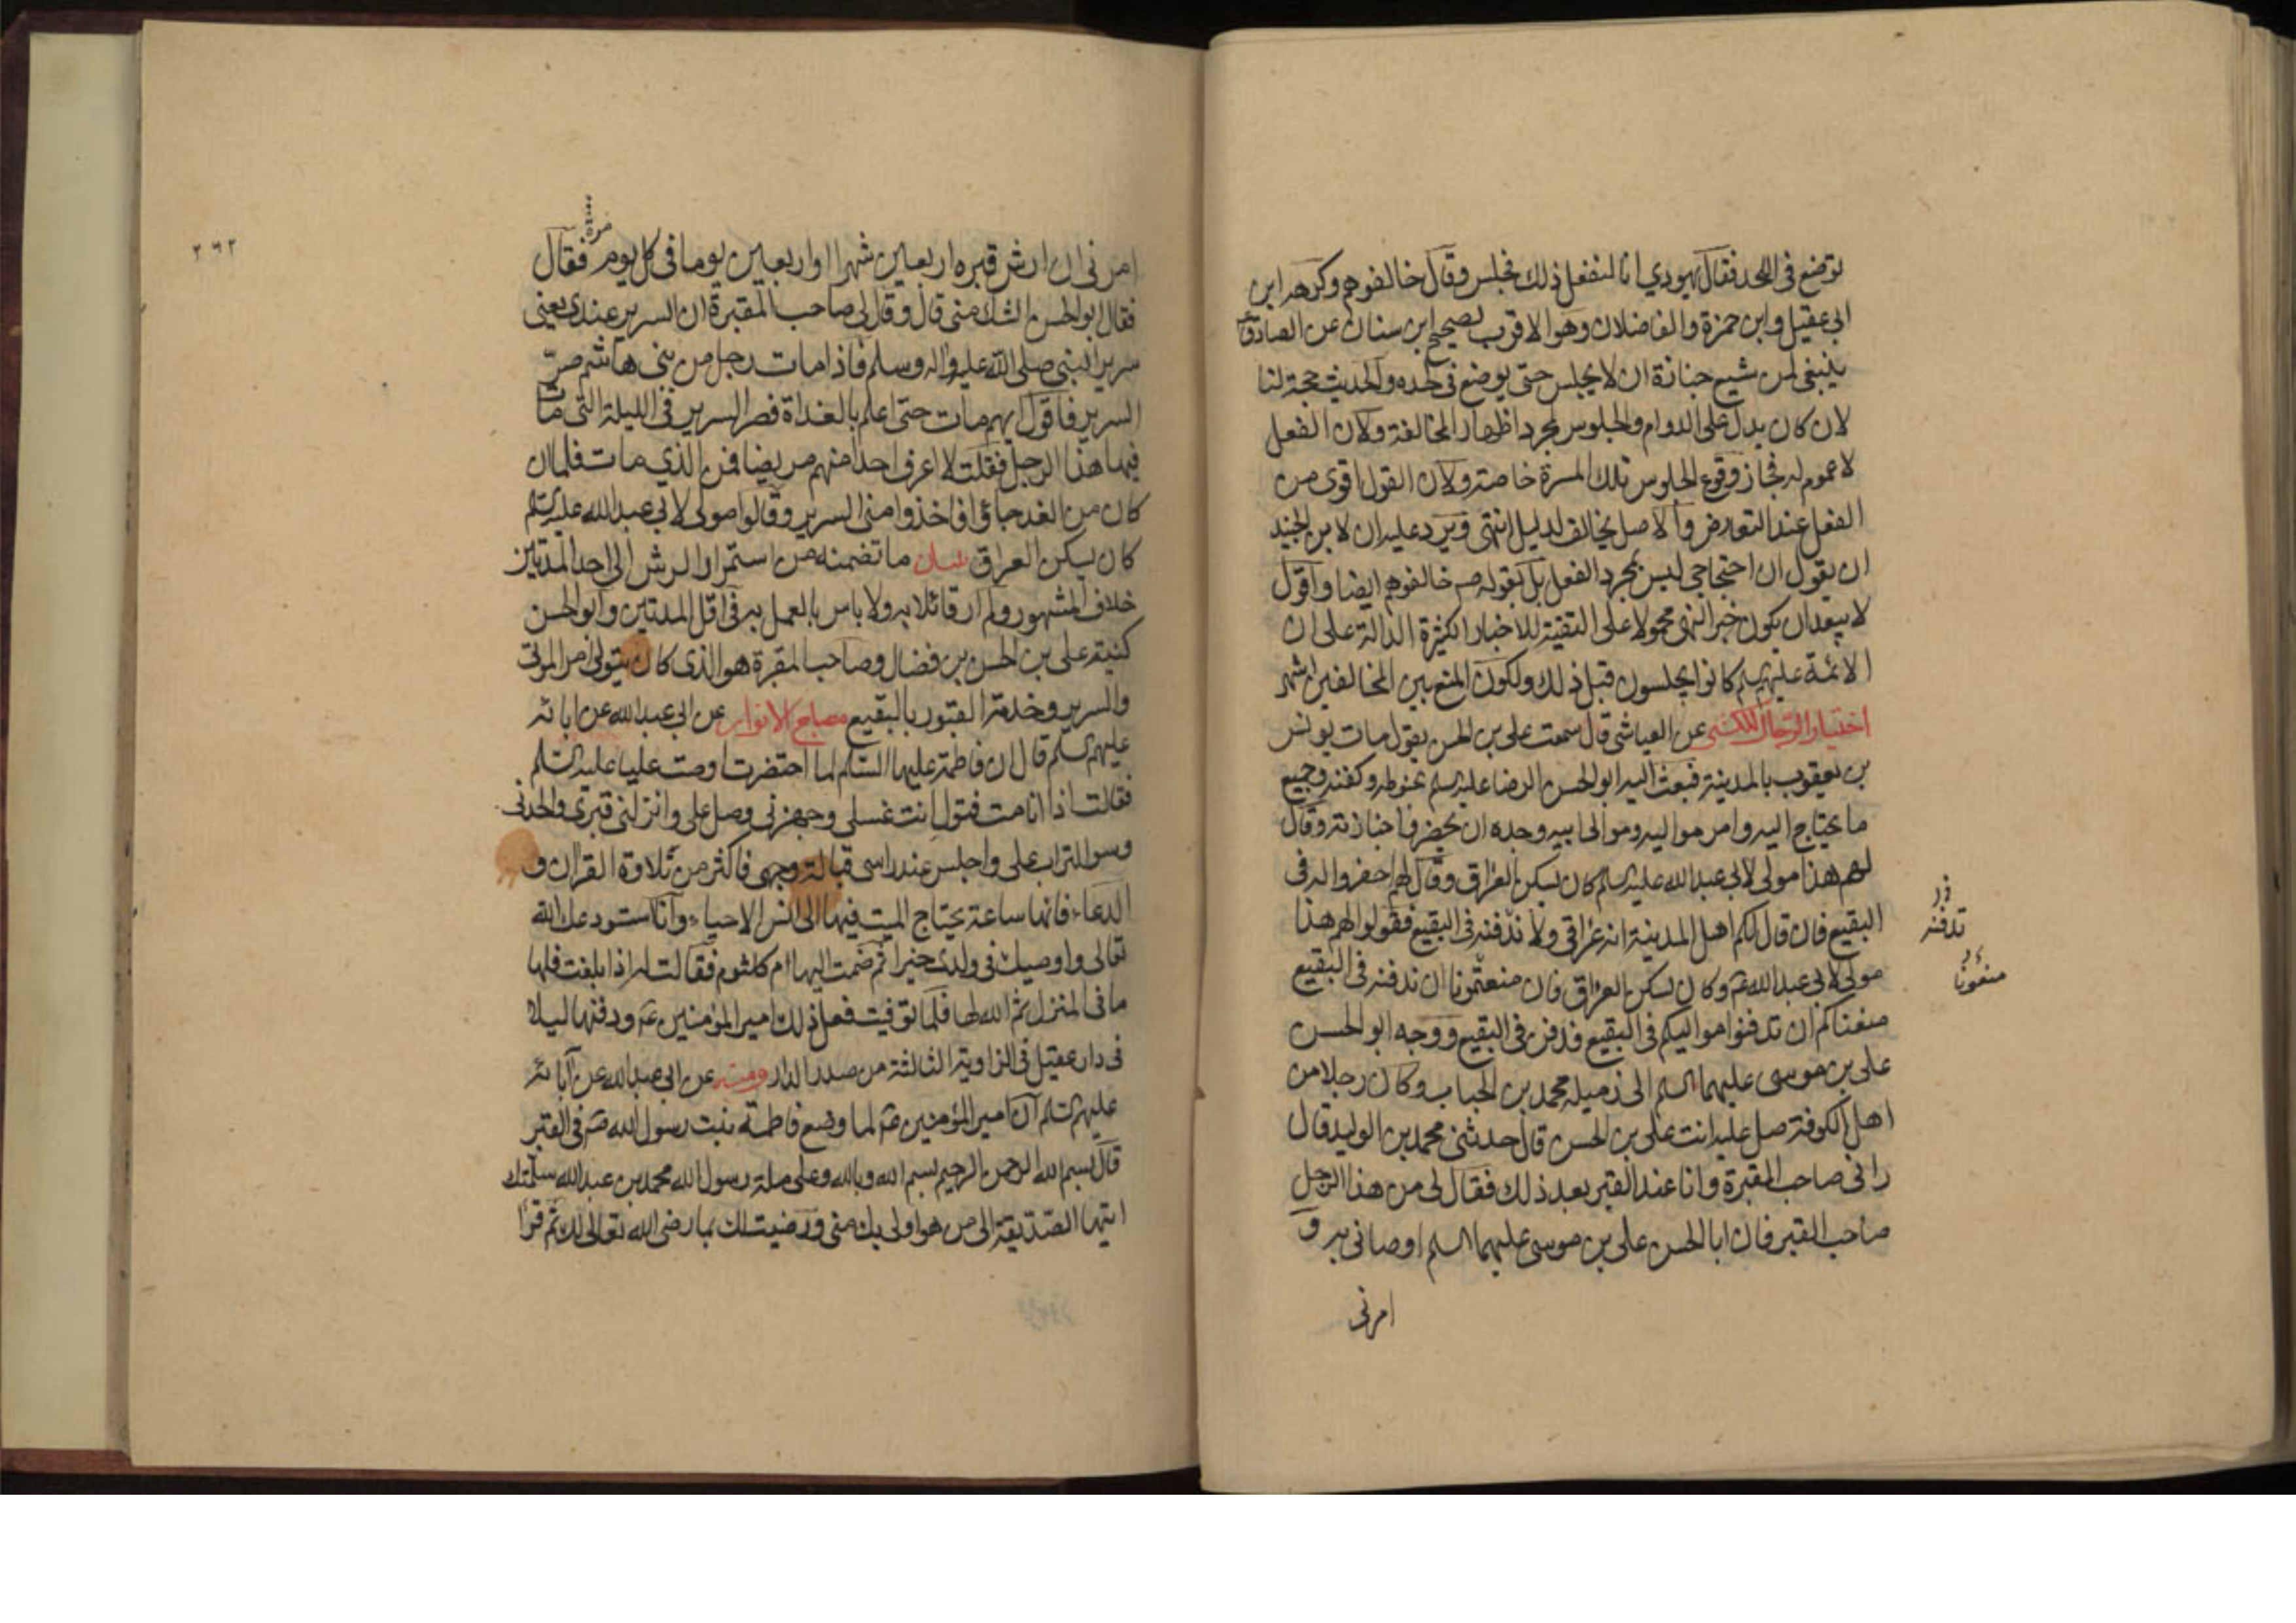 توضع فى اللحد فقال يهودي انا لنفعل ذلك فجلس وقال خالفوهم وكرهه ابن
ابى عقيل وابن حمزة والفاضلان وهو الاقرب لصحيح ابن سنان عن الصادق ع
ينبغى لمن شيع جنازة ان لا يجلس حتى يوضع فى لحده والحديث حجة لنا
لان كان يدل على الدوام والجلوس لمجرد اظهار المخالفة ولان الفعل
لا عموم له فجاز وقوع الجلوس تلك المرة خاصة ولان القول اقوى من
الفعل عند التعارض والاصل يخالف لدليل انتهى ويرد عليه ان لابن الجنيد
ان يقول ان احتجاجي ليس بمجرد الفعل بل بقوله ص خالفوهم ايضا واقول
لا يبعد ان يكون خبر النهى محمولا على التقية للاخبار الكثيرة الدالة على ان
الائمة عليهم السلم كانوا يجلسون قبل ذلك ولكون المنع بين المخالفين اشهر
اختيار الرجال للكشى عن العياشى قال سمعت على بن الحسن يقول مات يونس
بن يعقوب بالمدينة فبعث اليه ابو الحسن الرضا عليه السلم بحنوطه وكفنه وجميع
ما يحتاج اليه وامر مواليه وموالى ابيه وجده ان يحضروا جنازته وقال
لهم هذا مولى لابي عبد الله عليه السلم كان يسكن العراق وقال لهم احفروا له فى
البقيع فان قال لكم اهل المدينة انه عراقى ولا ندفنه فى البقيع فقولوا لهم هذا
مولى لابى عبد الله ع وكان يسكن العراق فان منعتمونا ان ندفنه فى البقيع
منعناكم ان تدفنوا مواليكم فى البقيع فدفن فى البقيع ووجه ابو الحسن
على بن موسى عليهما السلم الى زميله محمد بن الحباب وكان رجلا من
اهل الكوفة صل عليه انت على بن الحسن قال حدثنى محمد بن الوليد قال
رانى صاحب المقبرة وانا عند القبر بعد ذلك فقال لى من هذا الرجل
صاحب القبر فان ابا الحسن على بن موسى عليهما السلم اوصانى به و
امرنى
تدفنه
منعونا
٢٦٢
مرة
امرنى ان ارش قبره اربعين شهرا او اربعين يوما فى كل يوم فقال
فقال ابو الحسن الشك منى قال وقال لى صاحب المقبرة ان السرير عندى يعنى
سرير النبى صلى الله عليه واله وسلم فاذا مات رجل من بنى هاشم صر
السرير فاقول ايهم مات حتى اعلم بالغداة فصر السرير فى الليلة التى مات
فيها هذا الرجل فقلت لا اعرف احدا منهم مريضا فمن الذي مات فلما ان
كان من الغد جاؤا فاخذوا منى السرير وقالوا مولى لابى عبد الله عليه السلم
كان يسكن العراق بيان ما تضمنه من استمرار الرش الى احد المدتين
خلاف المشهور ولم ار قائلا به ولا باس بالعمل به فى اقل المدتين وابو الحسن
كنية على بن الحسن بن فضال وصاحب المقبرة هو الذى كان يتولى امر الموتى
والسرير وخدمة القبور بالبقيع مصباح الانوار عن ابى عبد الله عن ابائه
عليهم السلم قال ان فاطمة عليها السلام لما احتضرت اوصت عليا عليه السلم
فقالت اذا انا مت فتول انت غسلى وجهزنى وصل على وانزلنى قبرى والحدنى
وسو التراب على واجلس عند راسى قبالة وجهى فاكثر من تلاوة القران و
الدعاء فانها ساعة يحتاج الميت فيها الى انس الاحياء وانا استودعك الله
تعالى واوصيك فى ولدى خيرا ثم ضمت اليها ام كلثوم فقالت له اذا بلغت فلها
ما فى المنزل ثم الله لها فلما توفيت فعل ذلك امير المؤمنين ع ودفنها ليلا
فى دار عقيل فى الزاوية الثالثة من صدر الدار ومنه عن ابى عبد الله عن آبائه
عليهم السلم ان امير المؤمنين ع لما وضع فاطمة بنت رسول الله ص فى القبر
قال بسم الله الرحمن الرحيم بسم الله وبالله وعلى ملة رسول الله محمد بن عبد الله سلمتك
ايتها الصديقة الى من هو اولى بك منى ورضيت لك بما رضى الله تعالى لك ثم قرا